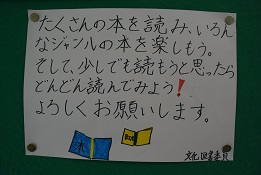 たくさんの本を読み、いろん
なジャンルの本を楽しもう。
そして、少しでも読もうと思ったら
どんどん読んでみよう!
よろしくお願いします。
本
文化図書委員